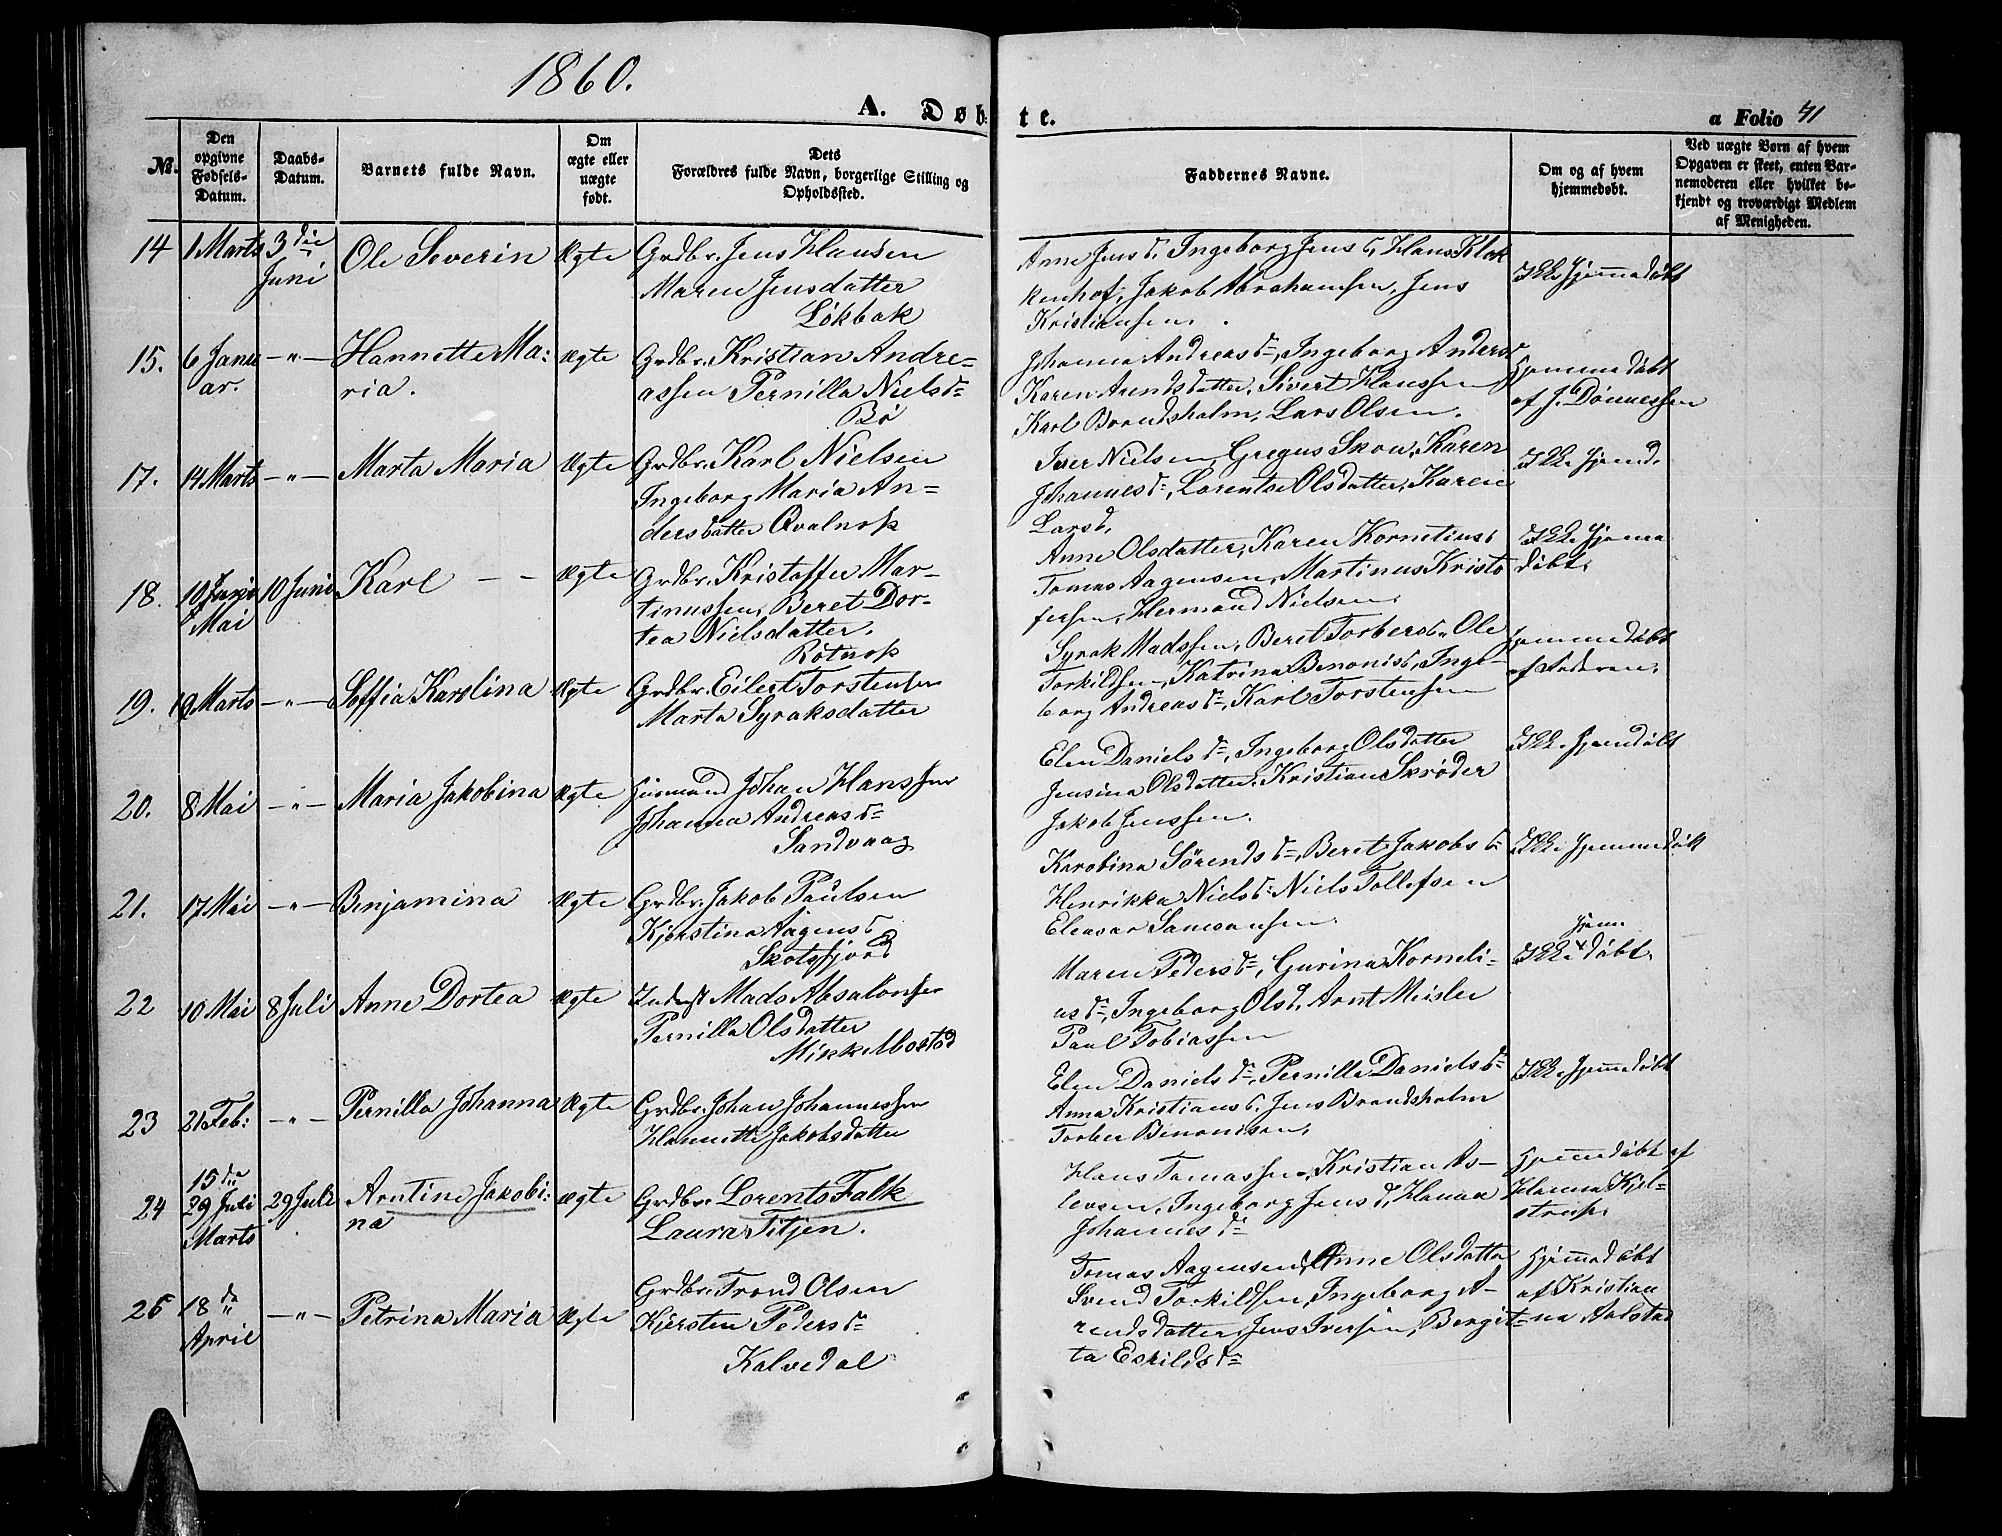 1860.
A. Døbte.
a Folio 41
No.
Den opgivne Fødsels-Datum.
Daabs-Datum.
Barnets fulde Navn.
Om ægte eller uægte født.
Dets Forældres fulde Navn, borgerlige Stilling og Opholdssted.
Faddernes Navne.
Om og af hvem hjemmedøbt.
Ved uægte Børn af hvem Opgaven er skeet, enten Barnemoderen eller hvilket bekjendt og troværdigt Medlem af Menigheden.
14 1 Marts 3die Juni Ole Severin Ægte Grdbr. Jens Hansen
Maren Jensdatter
Løkbak
Anne Jensd, Ingeborg Jensd, Hans Klok
kenhof, Jakob Abrahamsen, Jens
Kristiansen.
Ikke hjemmedøbt
15. 6 Janu
ar. -"- Hannette Ma:
ria. Ægte Grdbr. Kristian Andre-
assen Pernilla Nielsd
Bø
Johanna Andreasd, Ingeborg Andersd
Karen Arendsdatter, Sivert Hanssen
Karl Brandsholm, Lars Olsen.
Hjemmedøbt
af J. Dønnessen
17. 14 Marts -"- Marta Maria Ægte Grdbr. Karl Nielsen
Ingeborg Maria An-
dersdatter Qvalnæs
Iver Nielsen, Gregus Skow, Karen
Johannesd, Lorentse Olsdatter, Karen
Larsd,
Ikke hjemd.
18. 10 Juni
Mai 10 Juni Karl - - Ægte Grdbr. Kristoffer Mar-
tinussen, Beret Dor-
tea Nielsdatter.
Røtnæs
Anne Olsdatter, Karen Kornelius d
Tomas Aagensen, Martinus Kristo
fersen, Hermand Nielsen.
Ikke hjemme
døbt.
19. 19 Marts -"- Soffia Karolina Ægte Grdbr. Eilert Torstensen
Marta Syraksdatter
Syrak Madssen, Beret Torbersd, Ole
Torkildsen, Katrina Benonisd, Inge-
borg Andreasd, Karl Torstensen
Hjemmedøbt
af Faderen.
20. 8 Mai -"- Maria Jakobina Ægte Husmand Johan Hanssen
Johanna Andreasd
Sandvaag
Elen Danielsd, Ingeborg Olsdatter
Jensina Olsdatter, Kristian Skrøder
Jakob Jenssen.
Ikke hjemdøbt
21. 17 Mai -"- Benjamina Ægte Grdbr. Jakob Paulsen
Kjerstina Aagensd
Skotsfjord
Karobina Sørendsd, Beret Jakobsd
Henrikka Nielsd Niels Tollefsen
Eleasar Samsonsen.
Ikke hjemmedøbt
22 10 Mai 8 Juli Anne Dortea Ægte Inderst Mads Absalonsen
Pernilla Olsdatter
Mikkelbostad
Maren Pedersd, Gurina Korneli-
usd, Ingeborg Olsd, Arnt Meisler
Paul Tobiassen
hjem
Ikke døbt.
23 21 Feb: -"- Pernilla Johanna Ægte Grdbr. Johan Johannessen
Hannette Jakobsdatter
Elen Danielsd, Pernilla Danielsd
Anna Kristiansd, Jens Brandsholm
Torber Benonisen.
Ikke hjemmedøbt
24 15de
29 Juli
Marts 29 Juli Arntine Jakobi:
na ægte Grdbr. Lorents Falk
Laura Titjen.
Hans Tomassen, Kristian As-
levsen, Ingeborg Jensd, Hanna
Johannesd
Hjemmedøbt af
Hanna Kjel-
strup.
25 18de
April -"- Petrina Maria Ægte Grdbr. Trond Olsen
Kjersten Pedersd
Kalvedal
Tomas Aagensen, Anne Olsdatter
Svend Torkildsen, Ingeborg A-
rendsdatter, Jens Iversen, Bergit-
ta Eskildsd
Hjemmedøbt
af Kristian
na Aalstad